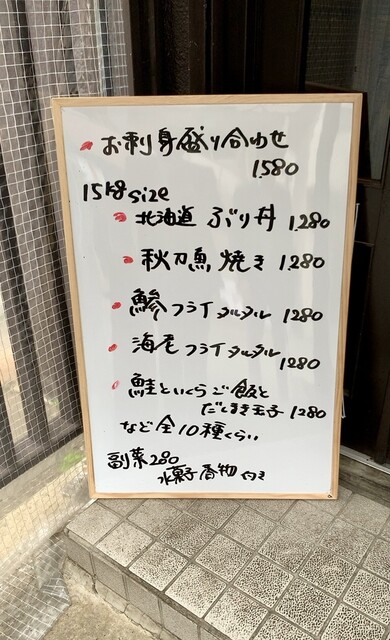 お刺身盛り合わせ
1,580
15kg size
北海道 ぶり丼 1,280
秋刀魚焼き 1,280
鯵フライタルタル 1,280
海老フライタルタル
1,280
鮭といくらご飯と
だしまき玉子 1280
など全10種くらい
副菜280
水菓子香物付き